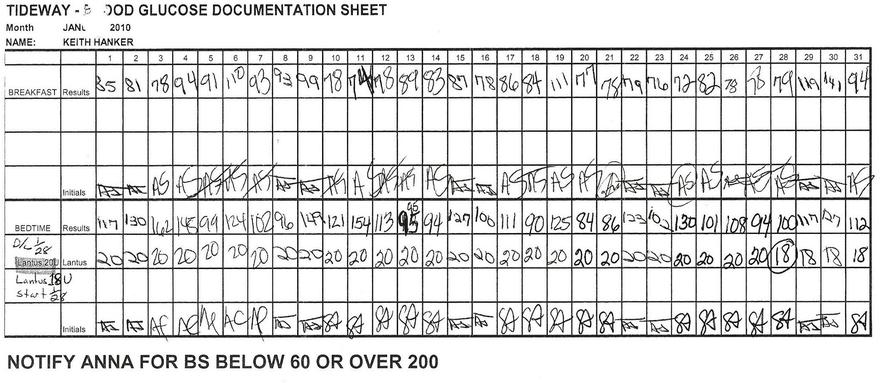 TIDEWAY - B OOD GLUCOSE DOCUMENTATION SHEET
Month JANU 2010
NAME: KEITH HANKER
1 2 3 4 5 6 7 8 9 10 11 12 13 14 15 16 17 18 19 20 21 22 23 24 25 26 27 28 29 30 31
BREAKFAST Results 85 81 78 94 91 110 93 93 99 78 74 78 89 83 87 78 86 84 111 77 78 79 76 72 82 78 78 79 119 141 94
Initials AS AS AS AS AS AS AS AS AS AS AS AS AS AS AS AS AS AS AS
95
BEDTIME Results 117 130 162 145 99 124 102 96 149 121 154 113 95 94 127 100 111 90 125 84 86 123 102 130 101 108 94 100 117 127 112
D/C 1/28
Lantus 20U Lantus 20 20 20 20 20 20 20 20 20 20 20 20 20 20 20 20 20 20 20 20 20 20 20 20 20 20 20 18 18 18 18
Lantus 18 U
Start 1/28
Initials
NOTIFY ANNA FOR BS BELOW 60 OR OVER 200